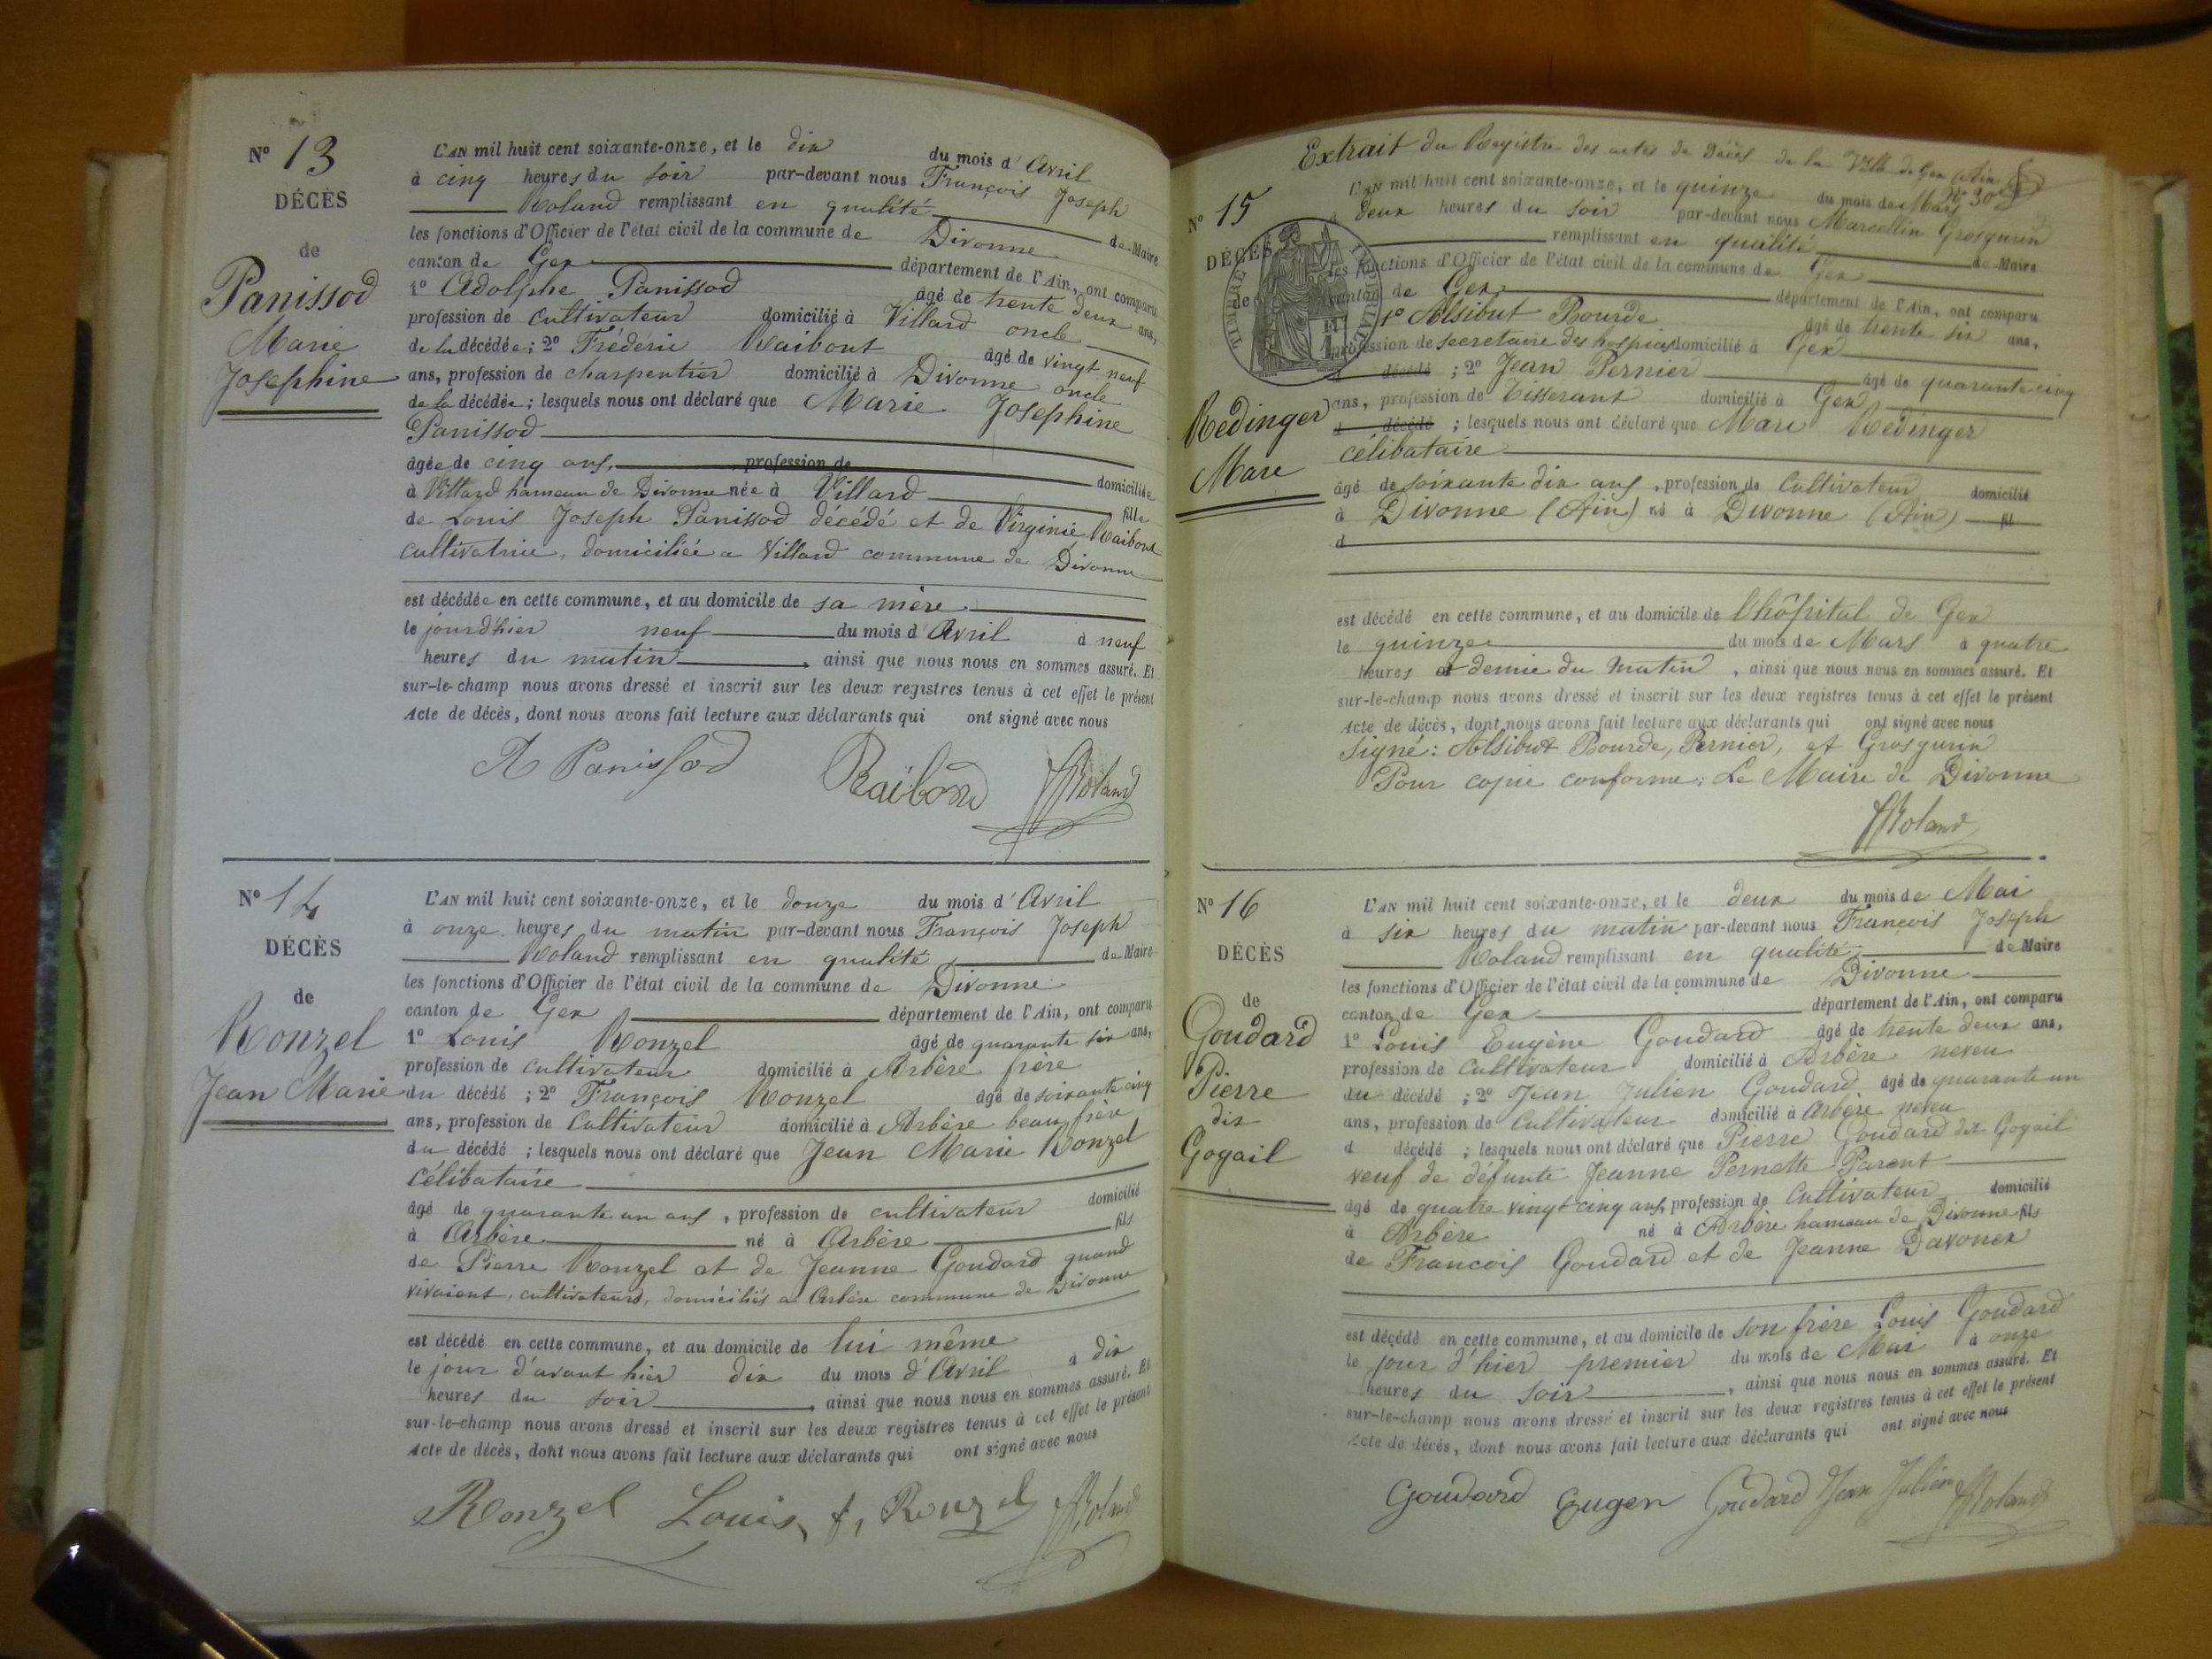 N° 13
DÉCÈS
de
Panissod
Marie
Josephine
L'AN mil huit cent soixante-onze, et le dix du mois d'Avril
à cinq heures du soir par-devant nous François Joseph
Roland remplissant en qualité de Maire
les fonctions d'Officier de l'état civil de la commune de Divonne
canton de Gex département de l'Ain, ont comparu
1° Adolphe Panissod âgé de trente deux ans,
profession de cultivateur domicilié à Villard oncle
de la décédée; 2° Fréderic Raibout âgé de vingt neuf
ans, profession de charpentier domicilié à Divonne oncle
de la décédée; lesquels nous ont déclaré que Marie Josephine
Panissod
âgée de cinq ans, profession de domiciliée
à Villard hameau de Divonne née à Villard fille
de Louis Joseph Panissod décédé et de Virginie Raibout
cultivatrice, domiciliée a Villard commune de Divonne
est décédée en cette commune, et au domicile de sa mère
le jour d'hier neuf du mois d'Avril à neuf
heures du matin, ainsi que nous nous en sommes assuré. Et
sur-le-champ nous avons dressé et inscrit sur les deux registres tenus à cet effet le présent
Acte de décès, dont nous avons fait lecture aux déclarants qui ont signé avec nous
A Panissod Raibout JRoland
N° 14
DÉCÈS
de
Ronzel
Jean Marie
L'AN mil huit cent soixante-onze, et le douze du mois d'Avril
à onze heures du matin par-devant nous François Joseph
Roland remplissant en qualité de Maire
les fonctions d'Officier de l'état civil de la commune de Divonne
canton de Gex département de l'Ain, ont comparu
1° Louis Ronzel âgé de quarante six ans,
profession de cultivateur domicilié à Arbère frère
du décédé; 2° François Ronzel âgé de soixante cinq
ans, profession de Cultivateur domicilié à Arbère beau frère
du décédé; lesquels nous ont déclaré que Jean Marie Ronzel
Célibataire
âgé de quarante un ans, profession de cultivateur domicilié
à Arbère né à Arbère fils
de Pierre Ronzel et de Jeanne Goudard quand
vivaient, cultivateurs, domiciliés a Arbère commune de Divonne
est décédé en cette commune, et au domicile de lui même
le jour d'avant hier dix du mois d'Avril à dix
heures du soir, ainsi que nous nous en sommes assuré. Et
sur-le-champ nous avons dressé et inscrit sur les deux registres tenus à cet effet le présent
Acte de décès, dont nous avons fait lecture aux déclarants qui ont signé avec nous
Ronzel Louis f, Ronzel JRoland
Extrait du Registre des actes de Décès de la Ville de Gex (Ain)
N° 30
N° 15
DÉCÈS
de
TIMBRE IMPÉRIAL
Redinger
Marc
L'AN mil huit cent soixante-onze, et le quinze du mois de Mars
à deux heures du soir par-devant nous Marcellin Grosgurin
remplissant en qualité de Maire
les fonctions d'Officier de l'état civil de la commune de Gex
canton de Gex département de l'Ain, ont comparu
1° Alsibut Bourde âgé de trente six ans,
profession de secretaire des hospices domicilié à Gex
d décédé; 2° Jean Pernier âgé de quarante cinq
ans, profession de Tisserant domicilié à Gex
d décédé; lesquels nous ont déclaré que Marc Redinger
célibataire
âgé de soixante dix ans, profession de Cultivateur domicilié
à Divonne (Ain) né à Divonne (Ain) fil
d
est décédé en cette commune, et au domicile de l'hôpital de Gex
le quinze du mois de Mars à quatre
heures et demie du matin, ainsi que nous nous en sommes assuré. Et
sur-le-champ nous avons dressé et inscrit sur les deux registres tenus à cet effet le présent
Acte de décès, dont nous avons fait lecture aux déclarants qui ont signé avec nous
Signé: Alsibut Bourde, Pernier, et Grosgurin
Pour copie conforme: Le Maire de Divonne
JRoland
N° 16
DÉCÈS
de
Goudard
Pierre
dit
Gogail
L'AN mil huit cent soixante-onze, et le deux du mois de Mai
à six heures du matin par-devant nous François Joseph
Roland remplissant en qualité de Maire
les fonctions d'Officier de l'état civil de la commune de Divonne
canton de Gex département de l'Ain, ont comparu
1° Louis Eugène Goudard âgé de trente deux ans,
profession de Cultivateur domicilié à Arbère neveu
du décédé; 2° Jean Julien Goudard âgé de quarante un
ans, profession de Cultivateur domicilié à Arbère neveu
d décédé; lesquels nous ont déclaré que Pierre Goudard dit Gogail
veuf de défunte Jeanne Pernette Parent
âgé de quatre vingt cinq ans, profession de Cultivateur domicilié
à Arbère né à Arbère hameau de Divonne fils
de Francois Goudard et de Jeanne Davonex
est décédé en cette commune, et au domicile de son frère Louis Goudard
le jour d'hier premier du mois de Mai à onze
heures du soir, ainsi que nous nous en sommes assuré. Et
sur-le-champ nous avons dressé et inscrit sur les deux registres tenus à cet effet le présent
Acte de décès, dont nous avons fait lecture aux déclarants qui ont signé avec nous
Goudard Eugen Goudard Jean Julien JRoland